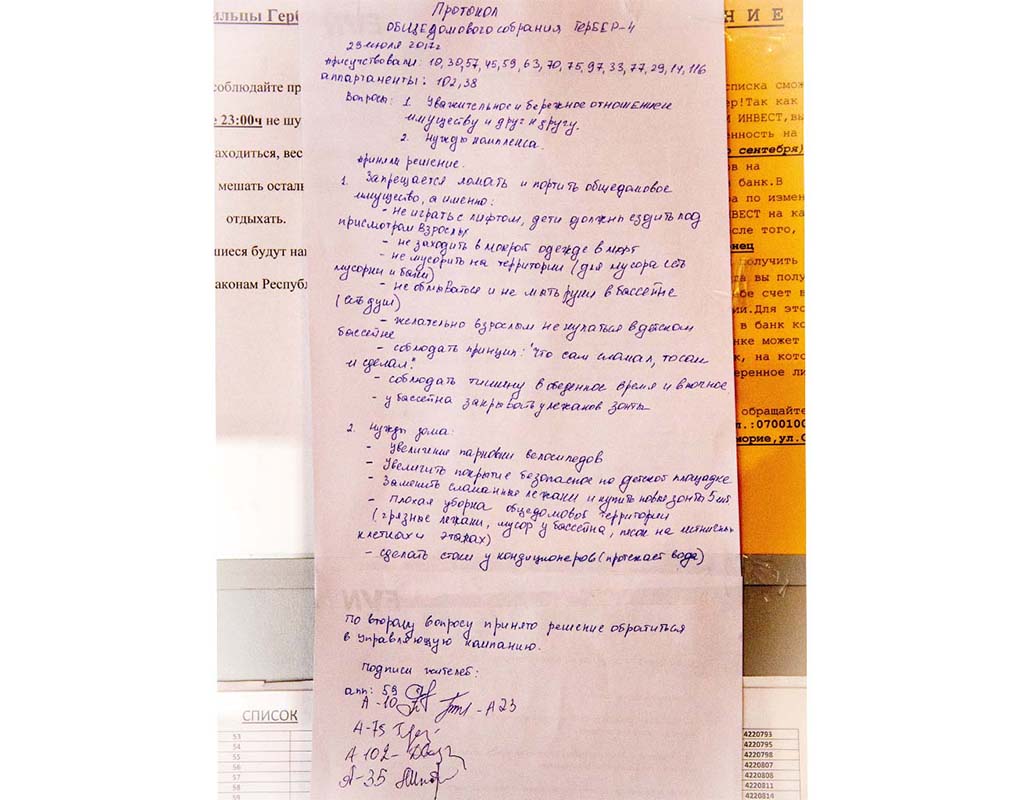 Протокол
общедомового собрания Гербер-4
29 июля 2017г
присутствовали: 10, 30, 57, 45, 59, 63, 70, 75, 97, 33, 77, 29, 14, 116
аппартаменты: 102, 38
Вопросы: 1. Уважительное и бережное отношением
имуществу и друг к другу.
2. Нужды комплекса.
приняли решение.
1. Запрещается ломать и портить общедомовое
имущество, а именно:
- не играть с лифтом, дети должны ездить под
присмотром взрослых
- не заходить в мокрой одежде в лифт
- не мусорить на территории (для мусора есть
мусорки и баки)
- не обмываться и не мыть руки в бассейне
(есть душ)
- желательно взрослым не купаться в детском
бассейне
- соблюдать принцип: "что сам сломал, то сам
и сделал".
- соблюдать тишину в обеденное время и в ночное
- у бассейна закрывать у лежаков зонты
2. Нужды дома:
- Увеличение парковки велосипедов
- Увеличить покрытие безопасное по детской площадке
- Заменить сломанные лежаки и купить новые зонты 5 шт
- Плохая уборка общедомовой территории
(грязные лежаки, мусор у бассейна, песок на лестничных
клетках и этажах)
- сделать стоки у кондиционеров (протекает вода)
По второму вопросу принято решение обратиться
в Управляющую компанию.
Подписи жителей:
апп: 59
А-10
- А23
А-75
А 102-
А-35
ильцы Герб
соблюдайте пр
е 23:00ч не шу
аходиться, вес
мешать осталь
отдыхать.
шиеся будут нак
аконам Республ
НИЕ
списка смож
ер!Так как
М ИНВЕСТ,вы
енность на
о сентября)
ов на
й банк.В
ра по измен
ВЕСТ на ка
сле того,
нец
получить
та вы полу
бе счет в
ии.Для это
в банк ко
нке может
к, на кото
еренное ли
обращайте
л.:0700100
морие,ул.С
EVN
СПИСОК
53
54
55
56
57
58
59
4220793
4220795
4220798
4220807
4220808
4220811
4220814